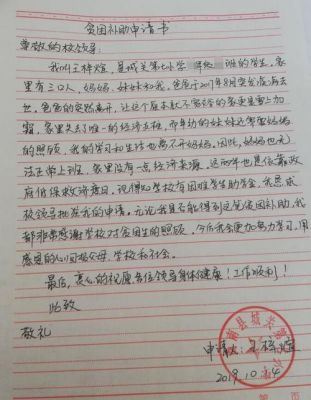 贫困补助申请书
尊敬的校领导:
我叫王梓煊,是城关第七小学 班的学生,家
里有三口人,妈妈、妹妹和我。爸爸于2017年8月突发脑溢血去
世,爸爸的突然离开,让这个原本就不富裕的家更是雪上加
霜,家里失去了唯一的经济支柱,而年幼的妹妹还需要妈妈
的照顾,我的学习和生活也离不开妈妈,因此,妈妈也无
法正常上班,家里没有一点经济来源。这两年也是依靠政
府低保救济度日,说得知学校有困难学生助学金,我恳求
校领导批准我的申请。无论我是否能得到这笔贫困补助,我
都非常感谢学校对贫困生的照顾,今后我会更加努力学习,用
感恩的心回报父母、学校和社会。
最后,衷心的祝愿各位领导身体健康!工作顺利!
此致
敬礼
申请人:王梓煊
2019.10.14